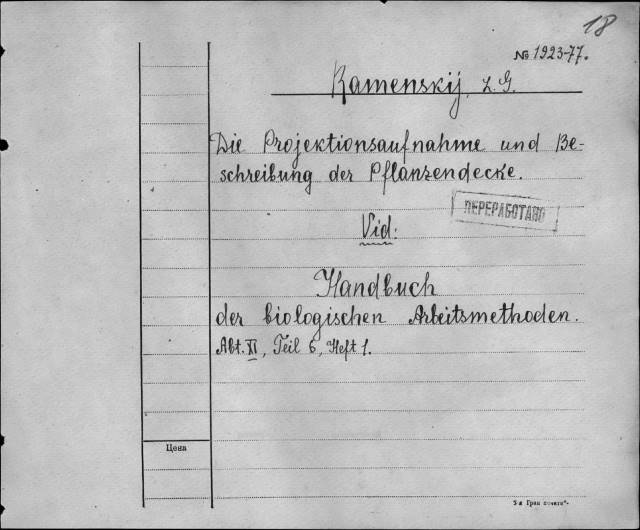 18
№ 1923-77.
Ramenskij, L. G.
Die Projektionsaufnahme und Be-
schreibung der Pflanzendecke.
ПЕРЕРАБОТАНО
Vid.
Handbuch
der biologischen Arbeitsmethoden.
Abt. XI, Teil 6, Heft 1.
Цена